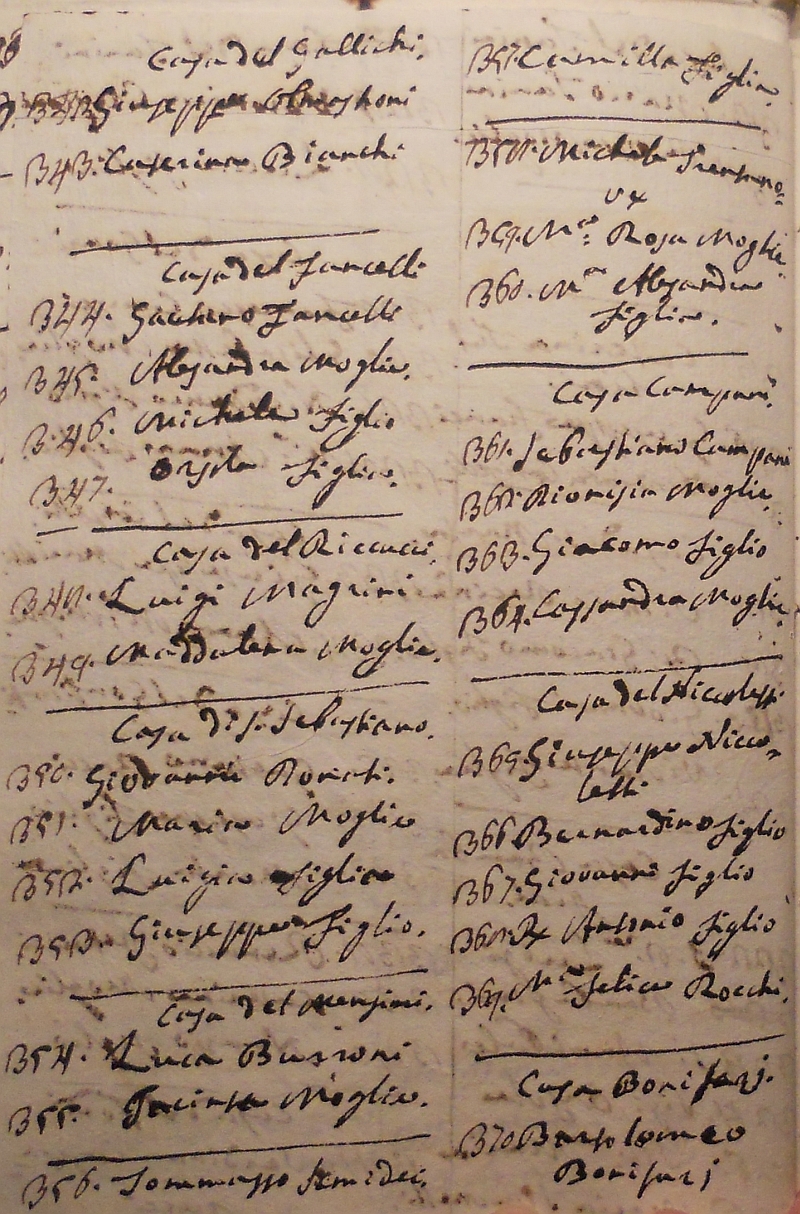 Casa del Gallichi.
342. Giuseppe
343. Caterina Bianchi
Casa del Fancelli
344. Gaetano Fancelli
345. Alesandra Moglie.
346. Michele figlio
347. Orsola figlia.
Casa del Riccucci.
348. Luigi Magrini
349. Maddalena Moglie.
Casa di S. Sebastiano.
350. Giovanni Donati.
351. Maria Moglie
352. Luigia figlia
353. Giuseppe figlio.
Casa del Mensini.
354. Luca Bussoni
355. Jacinta Moglie.
356. Tommasso Semidei.
357. Camilla figlia.
358. Michele
359. M.ª Rosa Moglie
360. M.ª Alesandra
figlia.
Casa Campani.
361. Sebastiano Campani
362. Dionisia Moglie.
363. Giacomo figlio
364. Cassandra Moglie.
Casa del Niccoletti.
365. Giuseppe Nicco=
letti
366. Bernardino figlio
367. Giovanni figlio
368. Antonio figlio
369. M.ª Felice Rocchi.
Casa Bonifazj.
370 Bartolomeo
Bonifazj